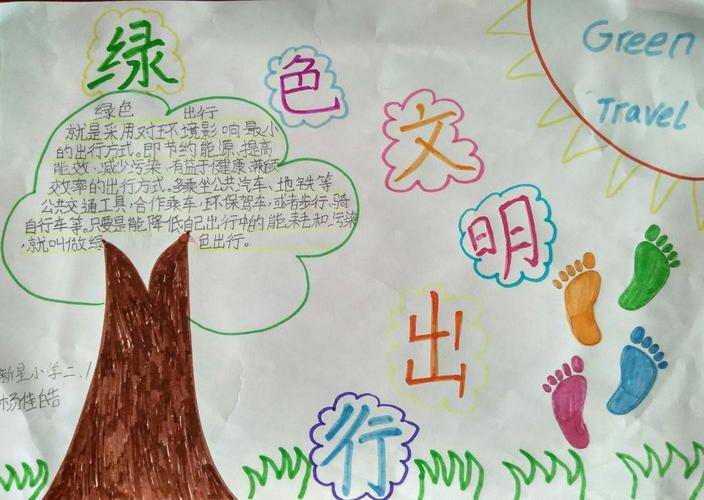 绿色文明出行
Green
Travel
绿色 出行
就是采用对环境影响最小
的出行方式。即节约能源、提高
能效、减少污染、有益于健康、兼顾
效率的出行方式。多乘坐公共汽车、地铁等
公共交通工具,合作乘车,环保驾车,或者步行、骑
自行车等。只要是能降低自己出行中的能耗和污染
,就叫做绿色出行。
新星小学二.1
杨佳皓